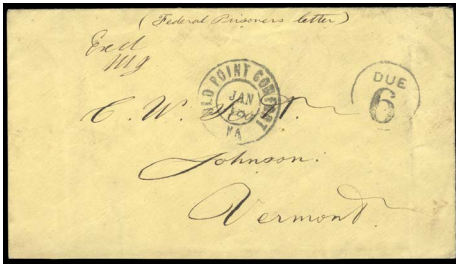 (Federal Prisoners letter)
Exd
OLD POINT COMFORT
JAN
VA
DUE
6
C. W.
Johnson.
Vermont.